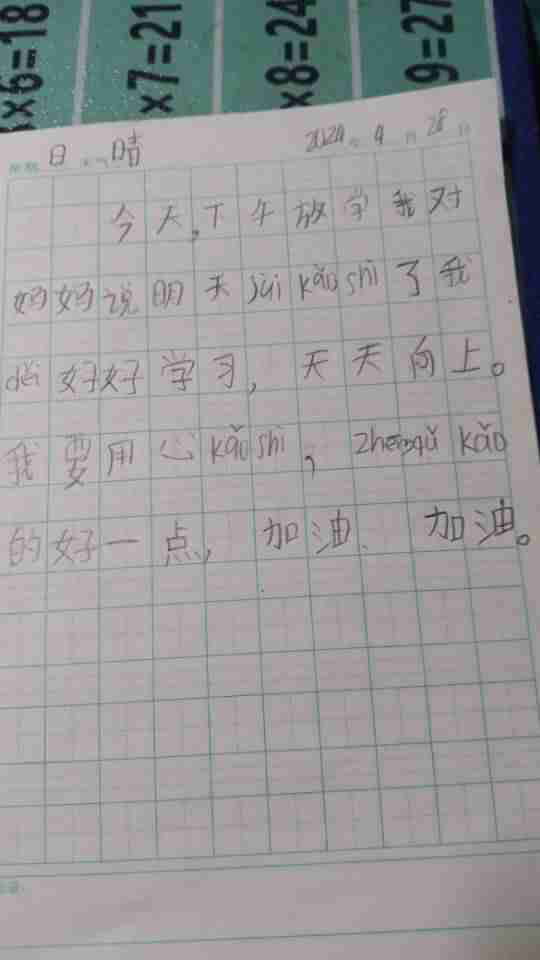 ×6=18
×7=21
×8=24
9=27
日 晴 2024年4月28日
今天,下午放学我对
妈妈说明天jùi kǎo shì了我
děi好好学习,天天向上。
我要用心kǎo shì,zhēngqǔ kǎo
的好一点,加油、加油。